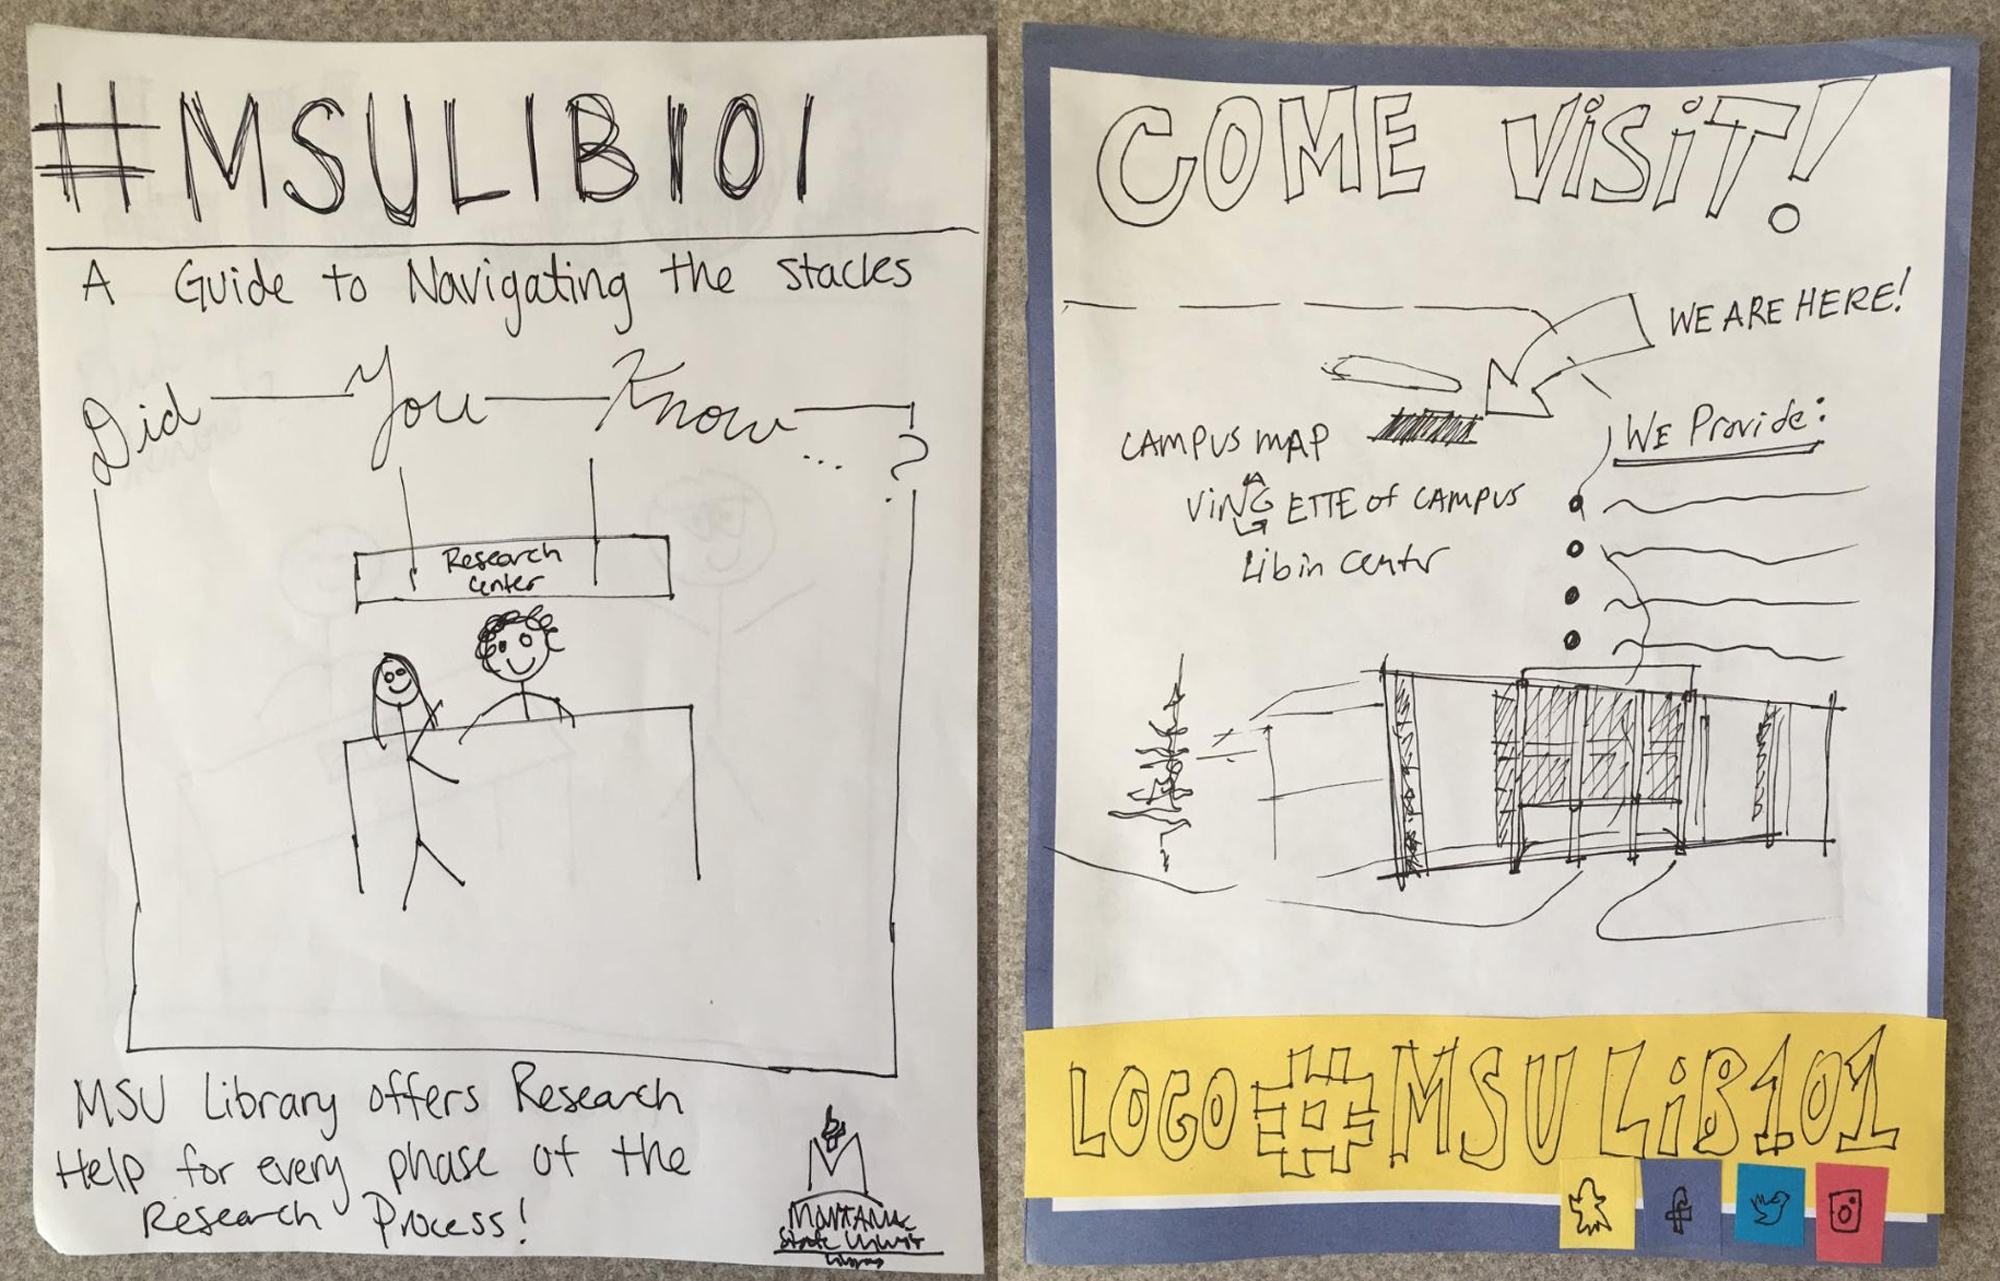 #MSULIB101
A Guide to Navigating the stacks
Did You Know...?
Research
Center
MSU Library offers Research
Help for every phase of the
Research Process!
M
MONTANA
State
COME ViSiT!
WE ARE HERE!
WE Provide:
CAMPUS MAP
ViNGETTE of CAMPUS
Libin Centr
LOGO #MSU LiB101
f